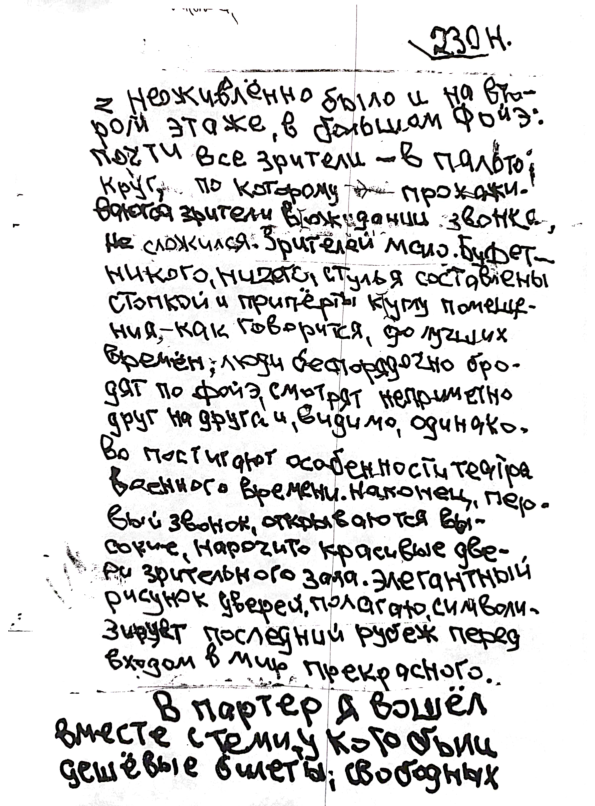 230 Н.
Неоживлённо было и на вто-
ром этаже, в большом фойэ:
почти все зрители – в пальто;
круг, по которому прохажи-
ваются зрители в ожидании звонка,
не сложился. Зрителей мало. Буфет-
никого, ничего, стулья составлены
стопкой и припёрты к углу помеще-
ния, – как говорится, до лучших
времён; люди беспорядочно бро-
дят по фойэ, смотрят неприметно
друг на друга и, видимо, одинако-
во постигают особенности театра
военного времени. Наконец, пер-
вый звонок, открываются вы-
сокие, нарочито красивые две-
ри зрительного зала. Элегантный
рисунок дверей, полагаю, символи-
зирует последний рубеж перед
входом в мир прекрасного..
В партер я вошёл
вместе с теми, у кого были
дешёвые билеты; свободных